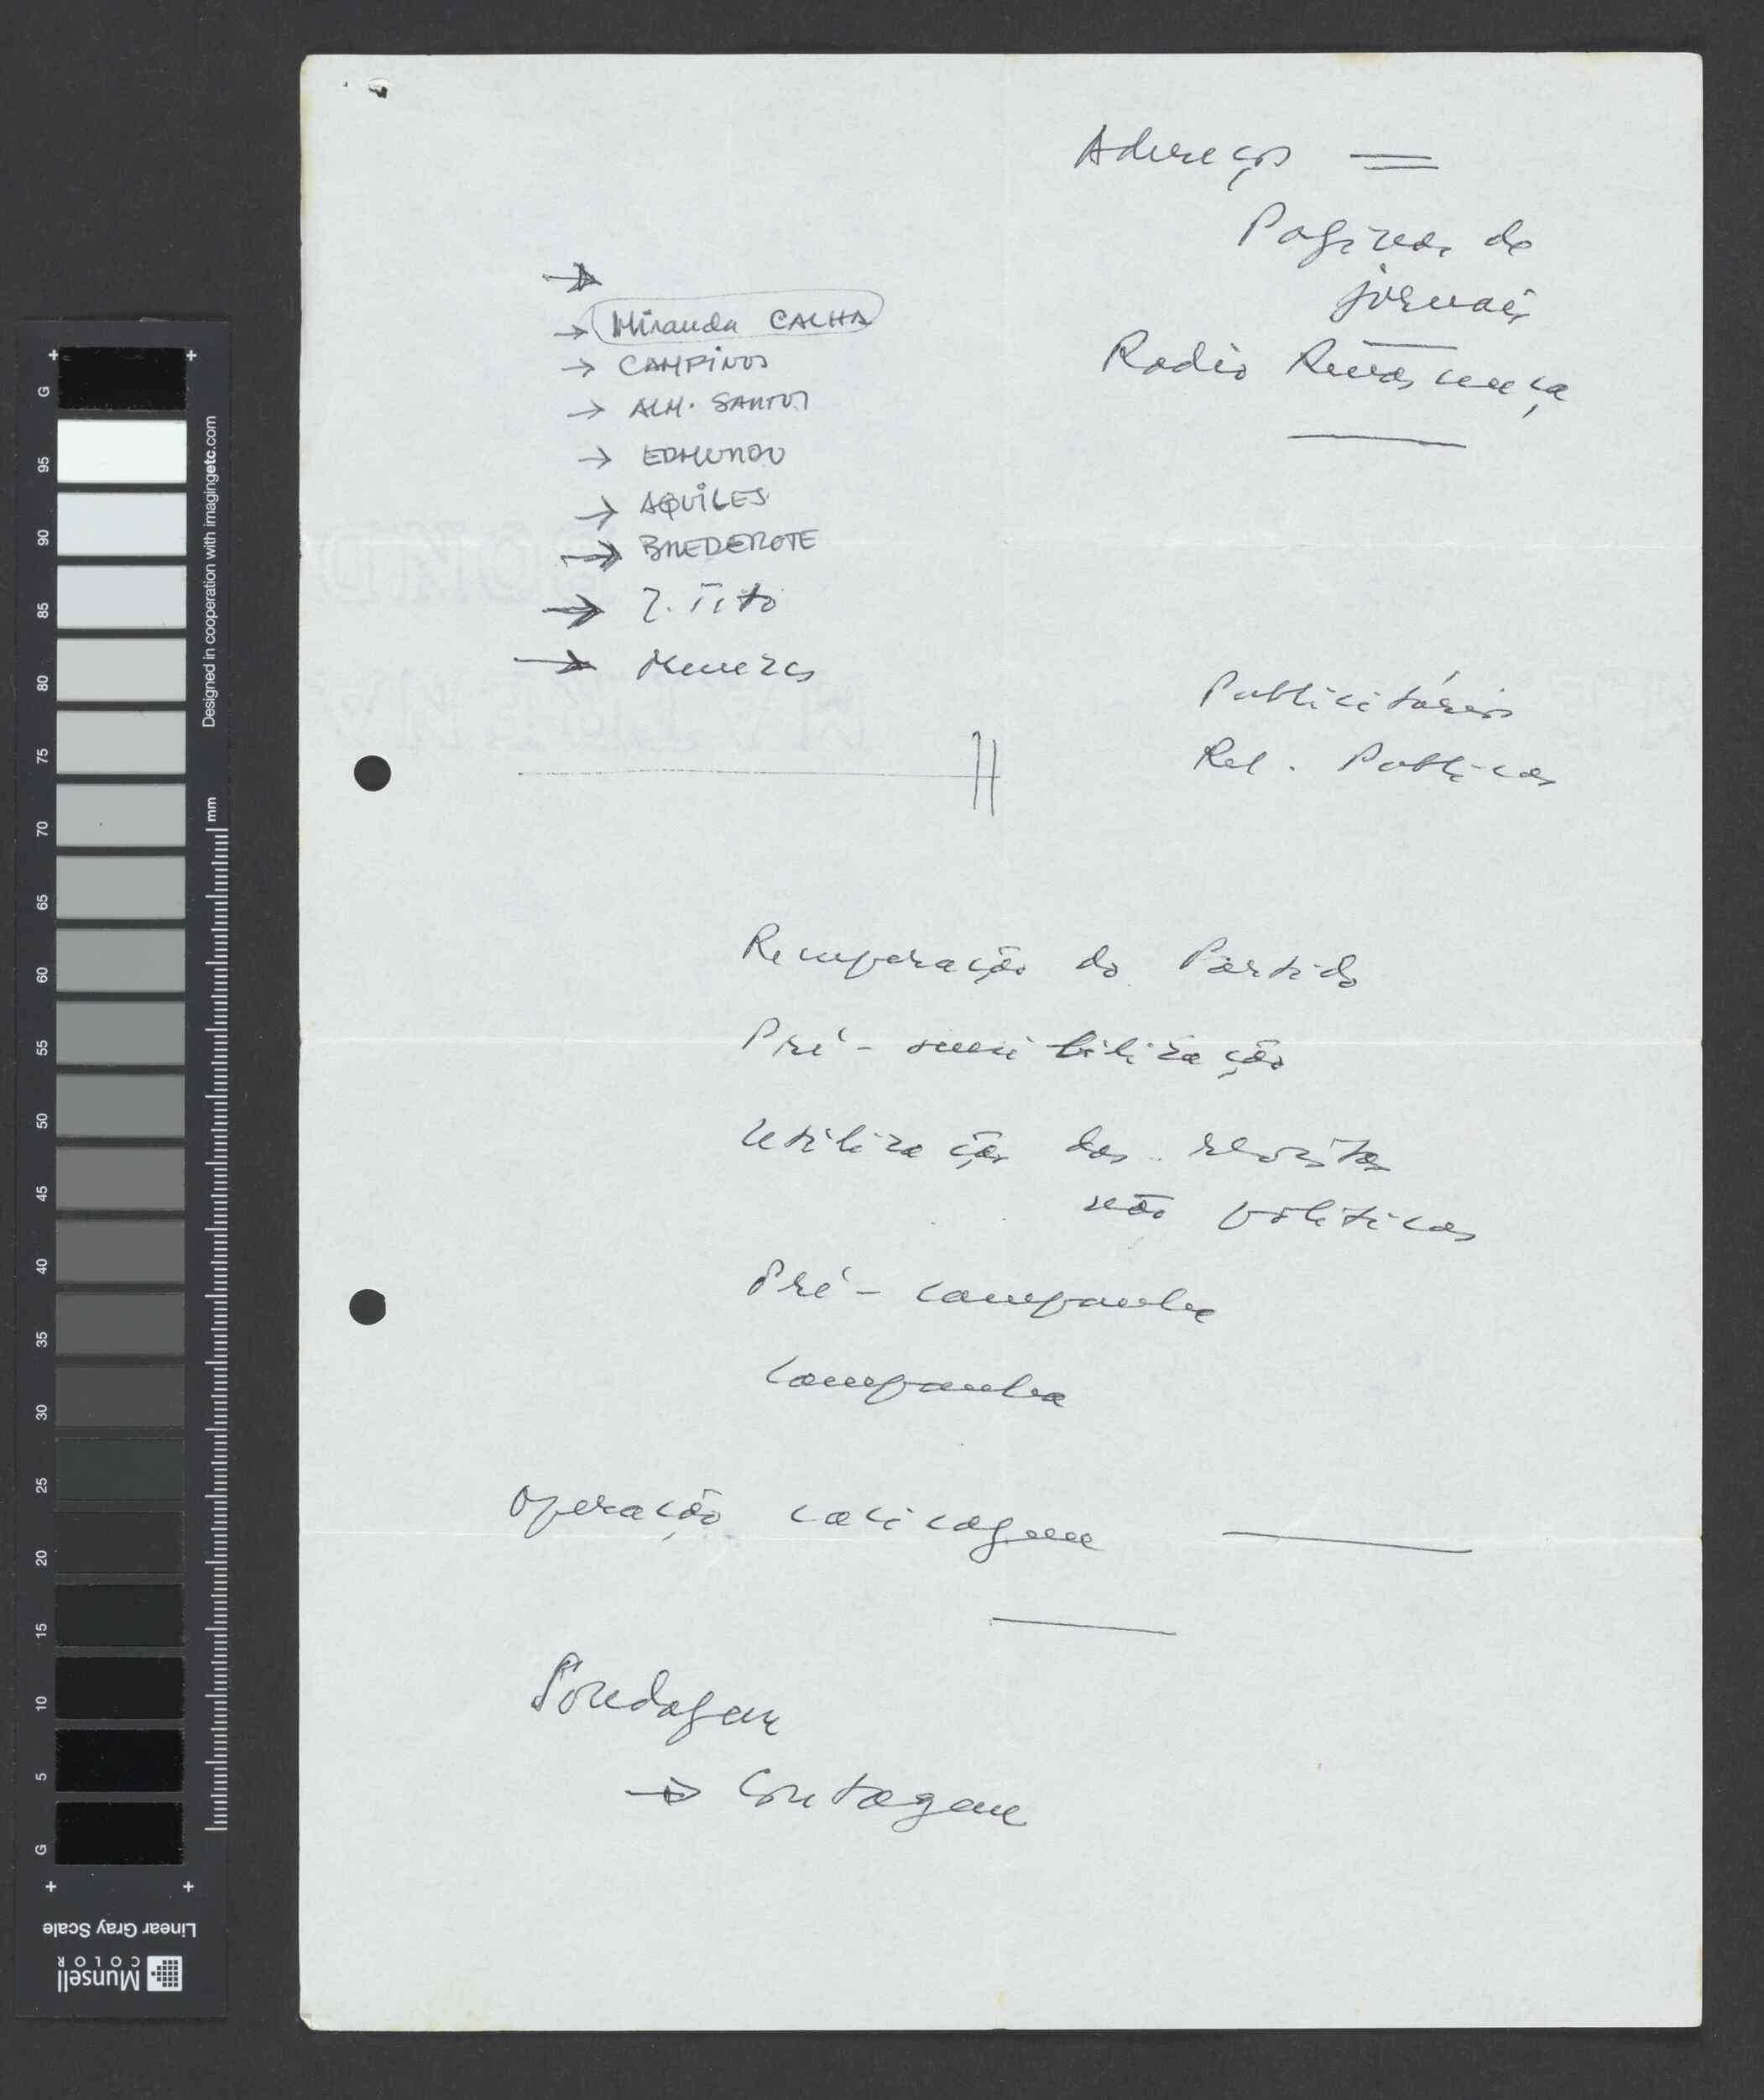 Adereços =
Paginas de
jornais
Radio Renascença
→
→ Miranda CALHA
→ CAMPINOS
→ ALM. SANTOS
→ EDMUNDO
→ AQUILES
→ BREDERODE
→ J. Tito
→ Menezes
Publicitários
Rel. Publicas
Recuperação do Partido
Pré-sensibilização
Utilização das revistas
não politicas
Pré-campanha
Campanha
Operação cacicagem
Sondagem
→ Contagem
G
95
90
85
80
75
70
65
60
55
50
45
40
35
30
25
20
15
10
5
G
Designed in cooperation with imagingetc.com
mm
Linear Gray Scale
Munsell
COLOR